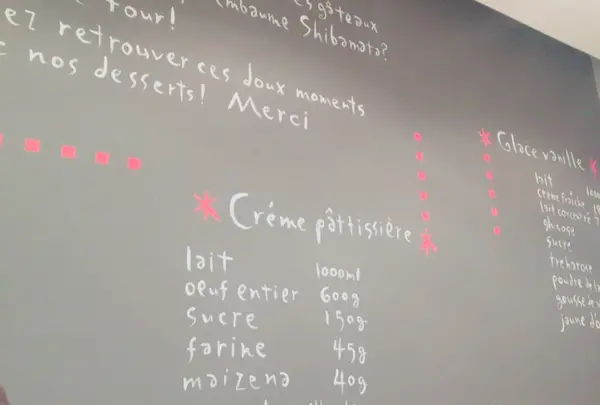 es gâteaux
Four!
embaume Shibanata?
ez retrouver ces doux moments
nos desserts! Merci
Créme pâttissière
lait 1000ml
oeuf entier 600g
sucre 150g
farine 45g
maizena 40g
Glace vanille
lait
crème fraîche
lait concentré
glucose
sucre
trehalose
poudre de
gousse de
jaune d'o